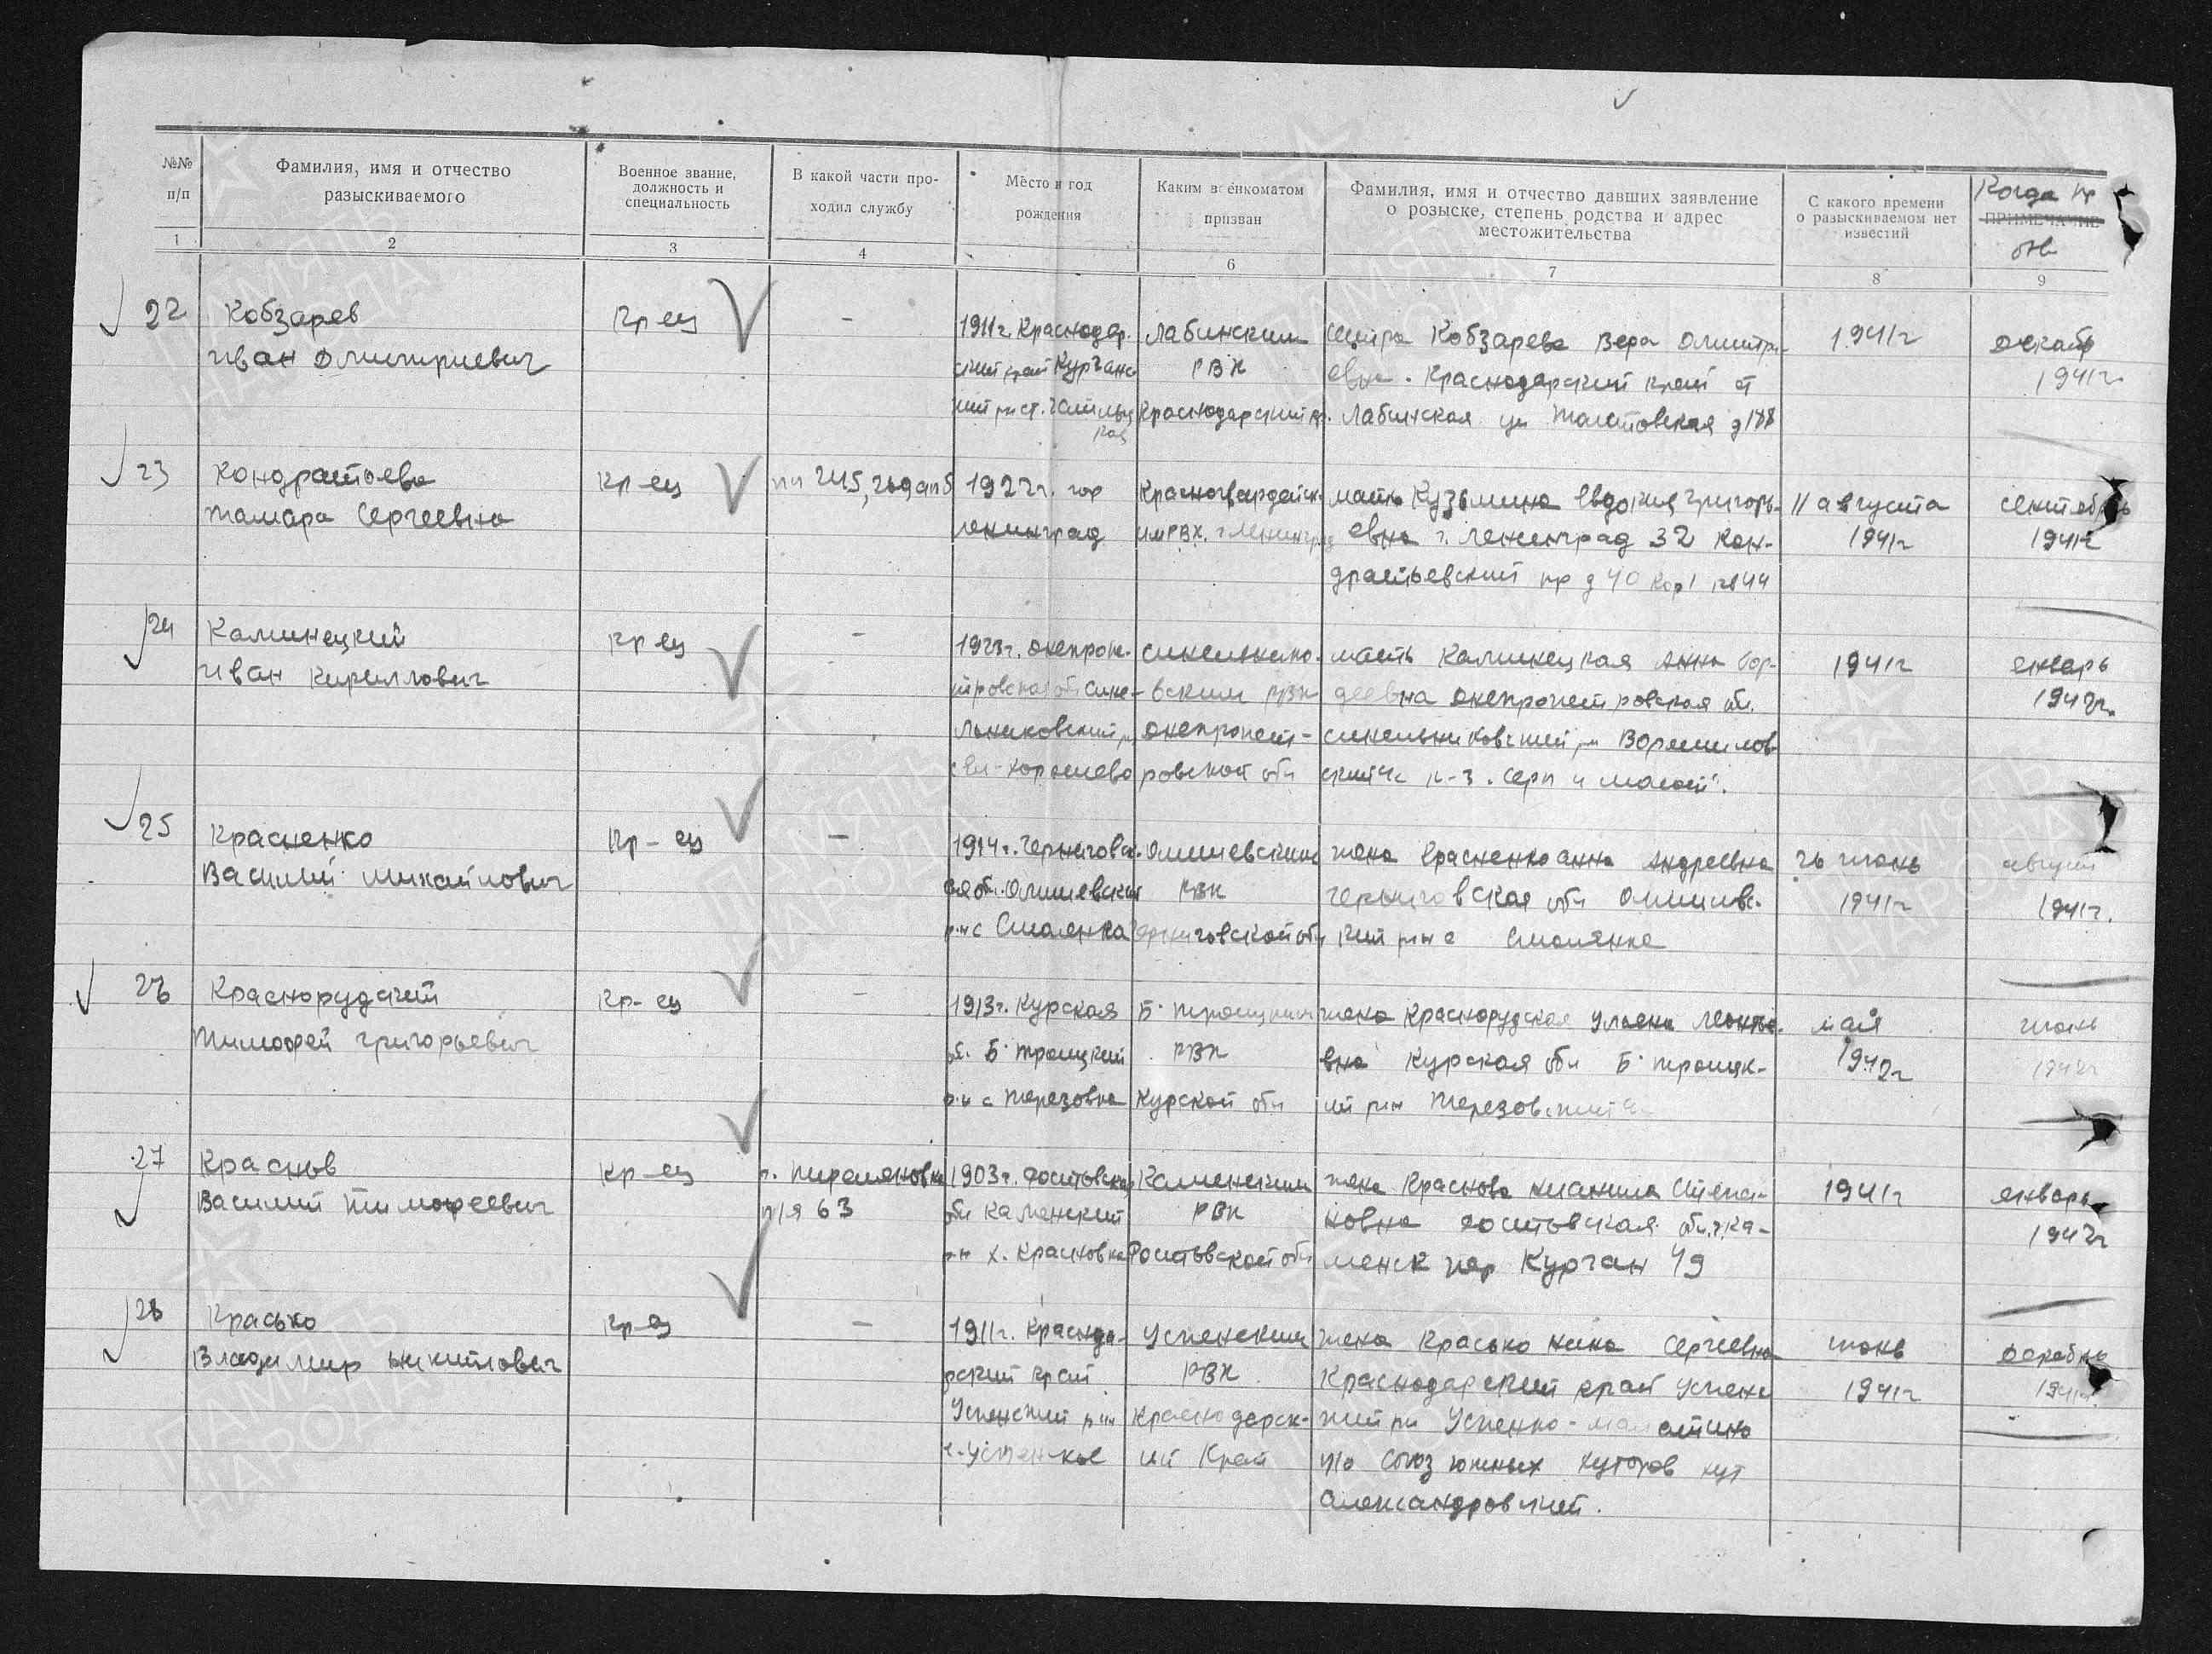 №№ п/п
Фамилия, имя и отчество разыскиваемого
Военное звание, должность и специальность
В какой части проходил службу
Место и год рождения
Каким военкоматом призван
Фамилия, имя и отчество давших заявление о розыске, степень родства и адрес местожительства
С какого времени о разыскиваемом нет известий
Когда пр
ПРИМЕЧАНИЕ
1 2 3 4 6 7 8 9
22
Кобзарев
Иван Дмитриевич
Кр-ец
—
1911г. Краснодар-
ский край Курганс
Лабинским
РВК
Краснодарский кр.
сестра Кобзарева Вера Дмитри-
евна. Краснодарский край ст
Лабинская ул
1941г
декабр
1941г.
23
Кондратьева
Тамара Сергеевна
Кр-ец
1922г. гор
Ленинград
Красногвардейск-
им РВК. г Ленинград
мать Кузьмина Евдокия Григорь-
евна г. Ленинград 32 Кон-
дратьевский пр д 40 кор 1 кв 44
11 августа
1941г
сентябрь
1941г
24
Калинецкий
Иван Кириллович
Кр-ец
—
1923г. Днепропе-
тровская об Сине-
льниковский р
РВК
Днепропет-
ровской обл
мать Калинецкая Анна
Днепропетровская обл.
Синельниковский рн Ворошилов-
ский с к-з. Серп и молот.
1941г
январь
1942г.
25
Красненко
Василий Михайлович
Кр-ец
—
1914г. Черниговс-
ая об. Олишевский
р-н с Смолянка
Олишевским
РВК
Черниговской обл
жена Красненко Анна Андреевна
Черниговская обл Олишевс-
кий р-н с Смолянка
26 июнь
1941г
август
1941г.
26
Краснорудский
Тимофей Григорьевич
Кр-ец
—
1913г. Курская
об. Б-Троицкий
р-н с Терезовка
Б-Троицким
РВК
Курской обл
жена Краснорудская Ульяна Леонтье-
вна Курская обл Б-Троицк-
ий р-н Терезовский
май
1942г
июнь
1942г
27
Краснов
Василий Тимофеевич
Кр-ец
п/я 63
1903г. Ростовская
обл Каменский
р-н х. Красновка
Каменским
РВК
Ростовской обл
жена Краснова Степа-
новна Ростовская обл. г. Ка-
менск пер Курган 49
1941г
январь
1942г
28
Красько
Владимир Никитович
Кр-ец
—
1911г. Краснода-
рский край
Успенский р-н
с. Успенское
Успенским
РВК
Краснодарск-
ий край
жена Красько Нина Сергеевна
Краснодарский край Успенс
кий р-н Успенко-
п/о союз южных хуторов хут
Александровский.
июнь
1941г
декабрь
1941г.
ПАМЯТЬ НАРОДА